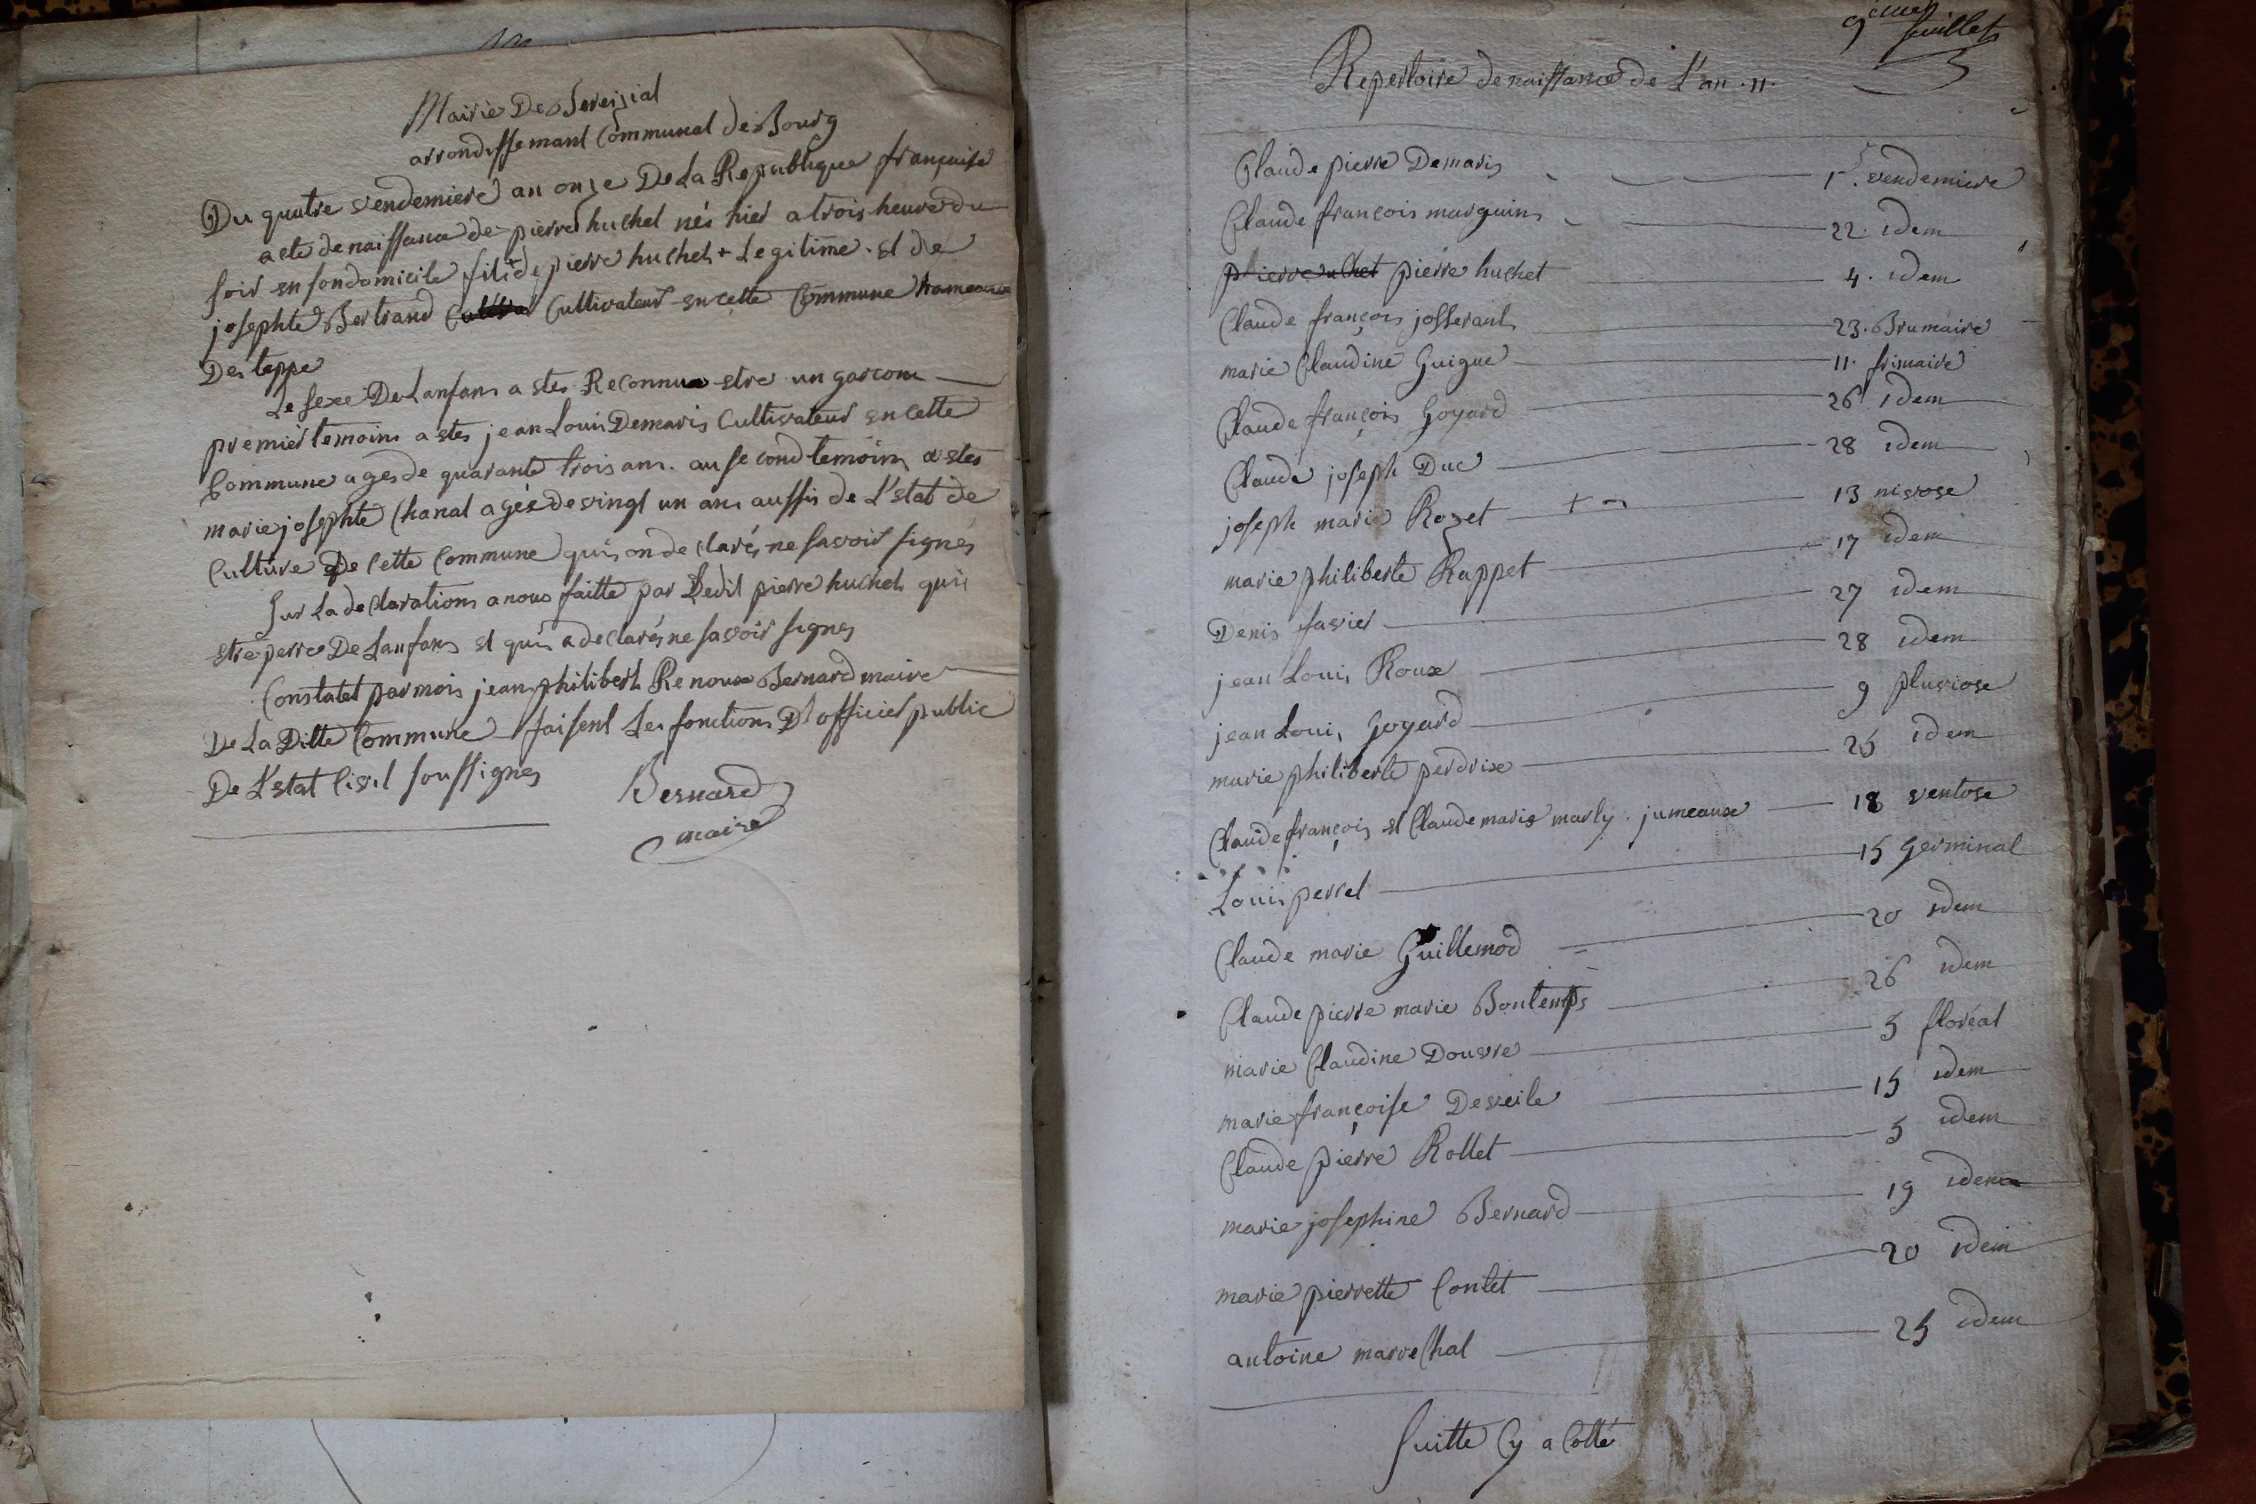 Mairie De Sereizial
arrondissemant Communal de Bourg
Du quatre vendemiere an onze De La Republique française
acte de naissance de pierre huchet nés hier a trois heure du
soir en son domicile fils de pierre huchet + Legitime et de
josephte Bertrand Cultivateur en cette Commune hameaux
Des teppe
Le sexe De Lanfans a stes Reconnu estre un garcons
premier temoins a stes jean Louis Demaris Cultivateur en cette
Commune ages de quarante trois ans. au second temoins a stes
marie josephte Chanal agés de vingt un ans aussis de L'estat de
Culture De cette Commune quis on declarés ne savoir signés
Sur La declarations a nous faitte par Ledit pierre huchet quis
estre perre De Lanfans et quis a declarés ne savoir signes
Constatet par mois jean philibert Renoux Bernard maire
De La Ditte Commune faisent Les fonctions D'officier public
De L'estat Civil soussignes
Bernard
maire
9eme feuillet
Repertoire de naissance de L'an .11.
Claude pierre Demaris 1er. vendemiere
Claude françois marguin 22. idem
pierre huchet 4. idem
Claude françois josserant 23. Brumaire
marie Claudine Guigue 11. frimaire
Claude françois Goyard 26 idem
Claude joseph Duc 28 idem
joseph marie Rozet + 13 nivose
marie philiberte Rappet 17 idem
Denis favier 27 idem
jean Louis Roux 28 idem
jean Louis Goyard 9 pluviose
marie philiberte perdrix 25 idem
Claude françois et Claude marie marly. jumeaux 18 ventose
Louis perret 15 Germinal
Claude marie Guillemod 20 idem
Claude pierre marie Bontemps 26 idem
marie Claudine Douvre 5 floréal
marie françoise Desveile 15 idem
Claude pierre Rollet 5 idem
marie josephine Bernard 19 idem
marie pierrette Contet 20 idem
antoine marechal 25 idem
Suitte Cy a Cotté